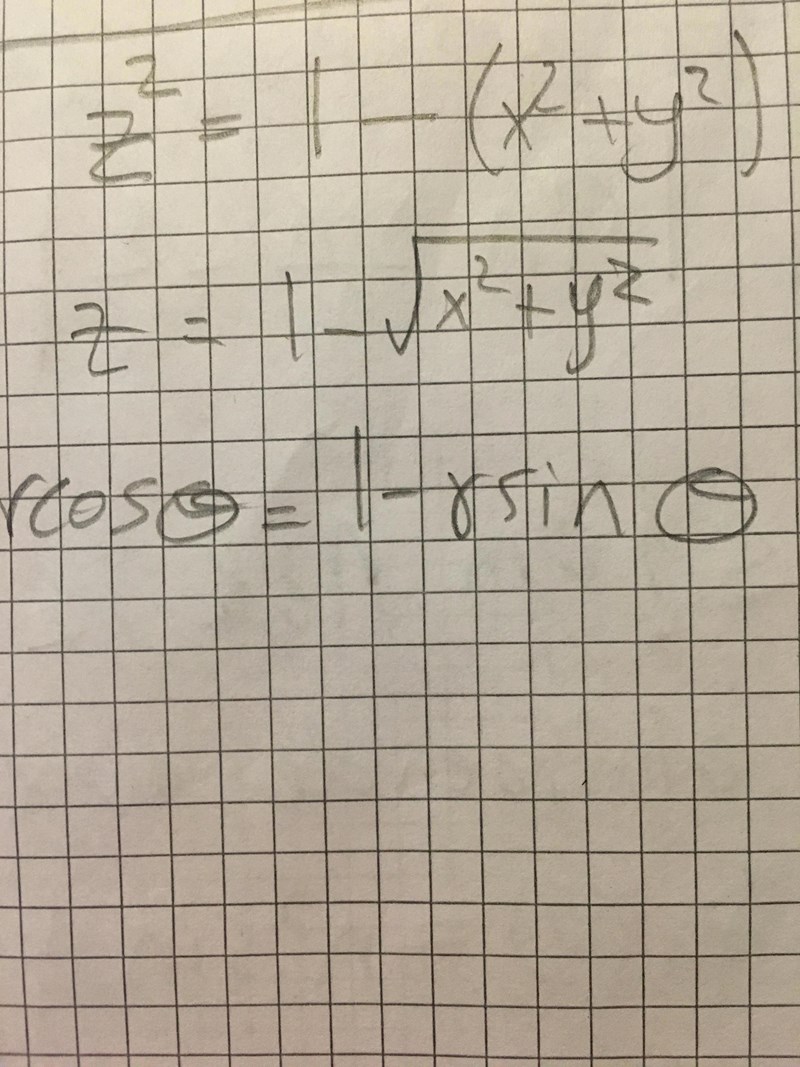 z² = 1 - (x² + y²)
z = 1 - √(x² + y²)
rcosθ = 1 - rsinθ